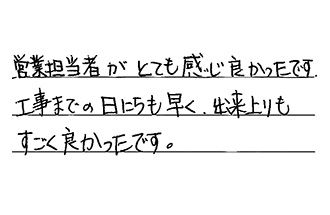 営業担当者がとても感じ良かったです.
工事までの日にちも早く、出来上りも
すごく良かったです。